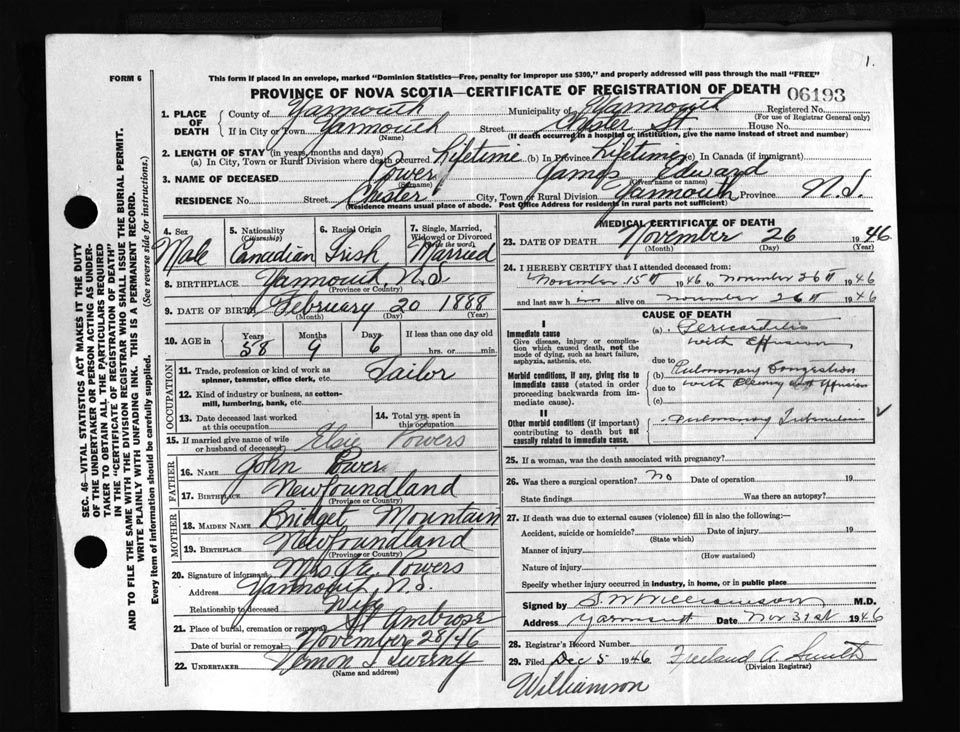 1.
FORM 6
This form if placed in an envelope, marked "Dominion Statistics—Free, penalty for improper use $300," and properly addressed will pass through the mail "FREE"
PROVINCE OF NOVA SCOTIA—CERTIFICATE OF REGISTRATION OF DEATH 06193
1. PLACE OF DEATH
County of Yarmouth Municipality of Yarmouth Registered No.
(For use of Registrar General only)
If in City or Town Yarmouth Street Chester St. House No.
(Name) (If death occurred in a hospital or institution, give the name instead of street and number)
2. LENGTH OF STAY (in years, months and days)
(a) In City, Town or Rural Division where death occurred Lifetime (b) In Province Lifetime (c) In Canada (if immigrant)
3. NAME OF DECEASED Power James Edward
(Surname) (Given name or names)
RESIDENCE No. Street Chester City, Town or Rural Division Yarmouth Province N.S.
(Residence means usual place of abode. Post Office Address for residents in rural parts not sufficient)
4. Sex Male
5. Nationality (Citizenship) Canadian
6. Racial Origin Irish
7. Single, Married, Widowed or Divorced (Write the word) Married
8. BIRTHPLACE Yarmouth N.S.
(Province or Country)
9. DATE OF BIRTH February 20 1888
(Month) (Day) (Year)
10. AGE in Years Months Days If less than one day old
58 9 6 hrs. or min.
OCCUPATION
11. Trade, profession or kind of work as spinner, teamster, office clerk, etc. Sailor
12. Kind of industry or business, as cotton-mill, lumbering, bank, etc.
13. Date deceased last worked at this occupation
14. Total yrs. spent in this occupation
15. If married give name of wife or husband of deceased Elsie Powers
FATHER
16. Name John Power
17. Birthplace Newfoundland
(Province or Country)
MOTHER
18. Maiden Name Bridget Mountain
19. Birthplace Newfoundland
(Province or Country)
20. Signature of informant Mrs Powers
Address Yarmouth, N.S.
Relationship to deceased Wife
21. Place of burial, cremation or removal St Ambrose
Date of burial or removal November 28/46
22. UNDERTAKER Vernon Sweeny
(Name and address)
MEDICAL CERTIFICATE OF DEATH
23. DATE OF DEATH November 26 1946
(Month) (Day) (Year)
24. I HEREBY CERTIFY that I attended deceased from:
November 15th 1946 to November 26th 1946
and last saw him alive on November 26th 1946
CAUSE OF DEATH
I
Immediate cause
Give disease, injury or complication which caused death, not the mode of dying, such as heart failure, asphyxia, asthenia, etc.
(a) Pericarditis with Effusion
due to
Morbid conditions, if any, giving rise to immediate cause (stated in order proceeding backwards from immediate cause).
(b) Pulmonary Congestion
due to with Pleurisy Effusion
(c)
II
Other morbid conditions (if important) contributing to death but not causally related to immediate cause.
Pulmonary Tuberculosis ✓
25. If a woman, was the death associated with pregnancy?
26. Was there a surgical operation? No Date of operation 19
State findings Was there an autopsy?
27. If death was due to external causes (violence) fill in also the following:
Accident, suicide or homicide? Date of injury 19
(State which)
Manner of injury
(How sustained)
Nature of injury
Specify whether injury occurred in industry, in home, or in public place
Signed by S W Williamson M.D.
Address Yarmouth Date Nov 31st 1946
28. Registrar's Record Number
29. Filed Dec 5 1946 Freeland A. Smith
(Division Registrar)
Williamson
SEC. 46—VITAL STATISTICS ACT MAKES IT THE DUTY
OF THE UNDERTAKER OR PERSON ACTING AS UNDER-
TAKER TO OBTAIN ALL THE PARTICULARS REQUIRED
IN THE "CERTIFICATE OF REGISTRATION OF DEATH"
AND TO FILE THE SAME WITH THE DIVISION REGISTRAR WHO SHALL ISSUE THE BURIAL PERMIT.
WRITE PLAINLY WITH UNFADING INK. THIS IS A PERMANENT RECORD.
Every item of information should be carefully supplied. (See reverse side for instructions.)